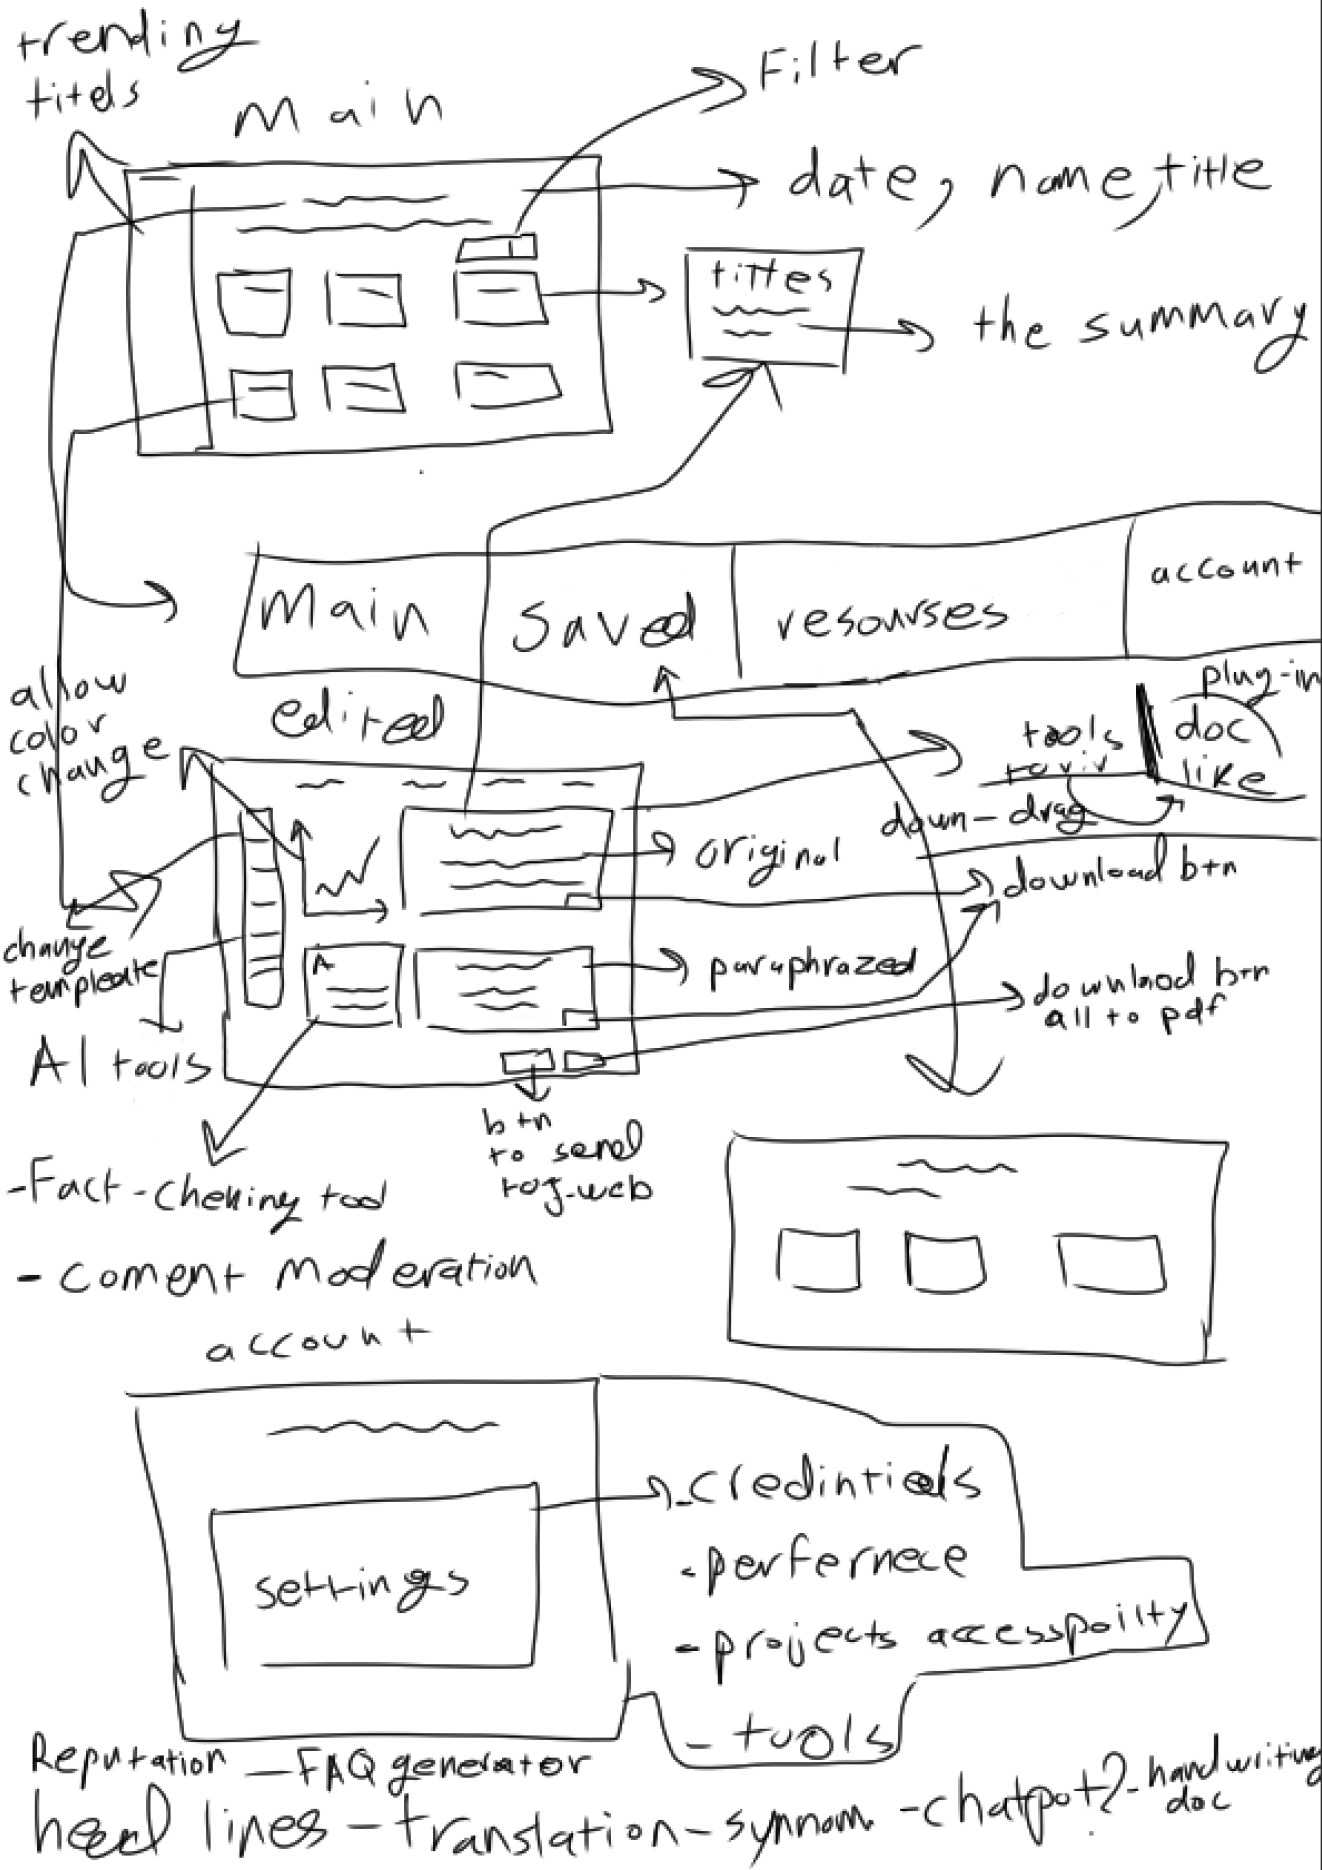 trending
titels
Main
Filter
date, name, title
tittes
the summary
Main
Saved
resourses
account
allow
color
change
edited
plug-in
tools
doc
like
down-drag
original
download btn
change
templeate
paraphrazed
download btn
all to pdf
AI tools
A
btn
to send
-Fact-cheking tool
- coment moderation
account
settings
- credintials
- perfernece
- projects accesspoilty
- tools
Reputation - FAQ generator
head lines - translation - synnom - chatpot? - handwriting
doc